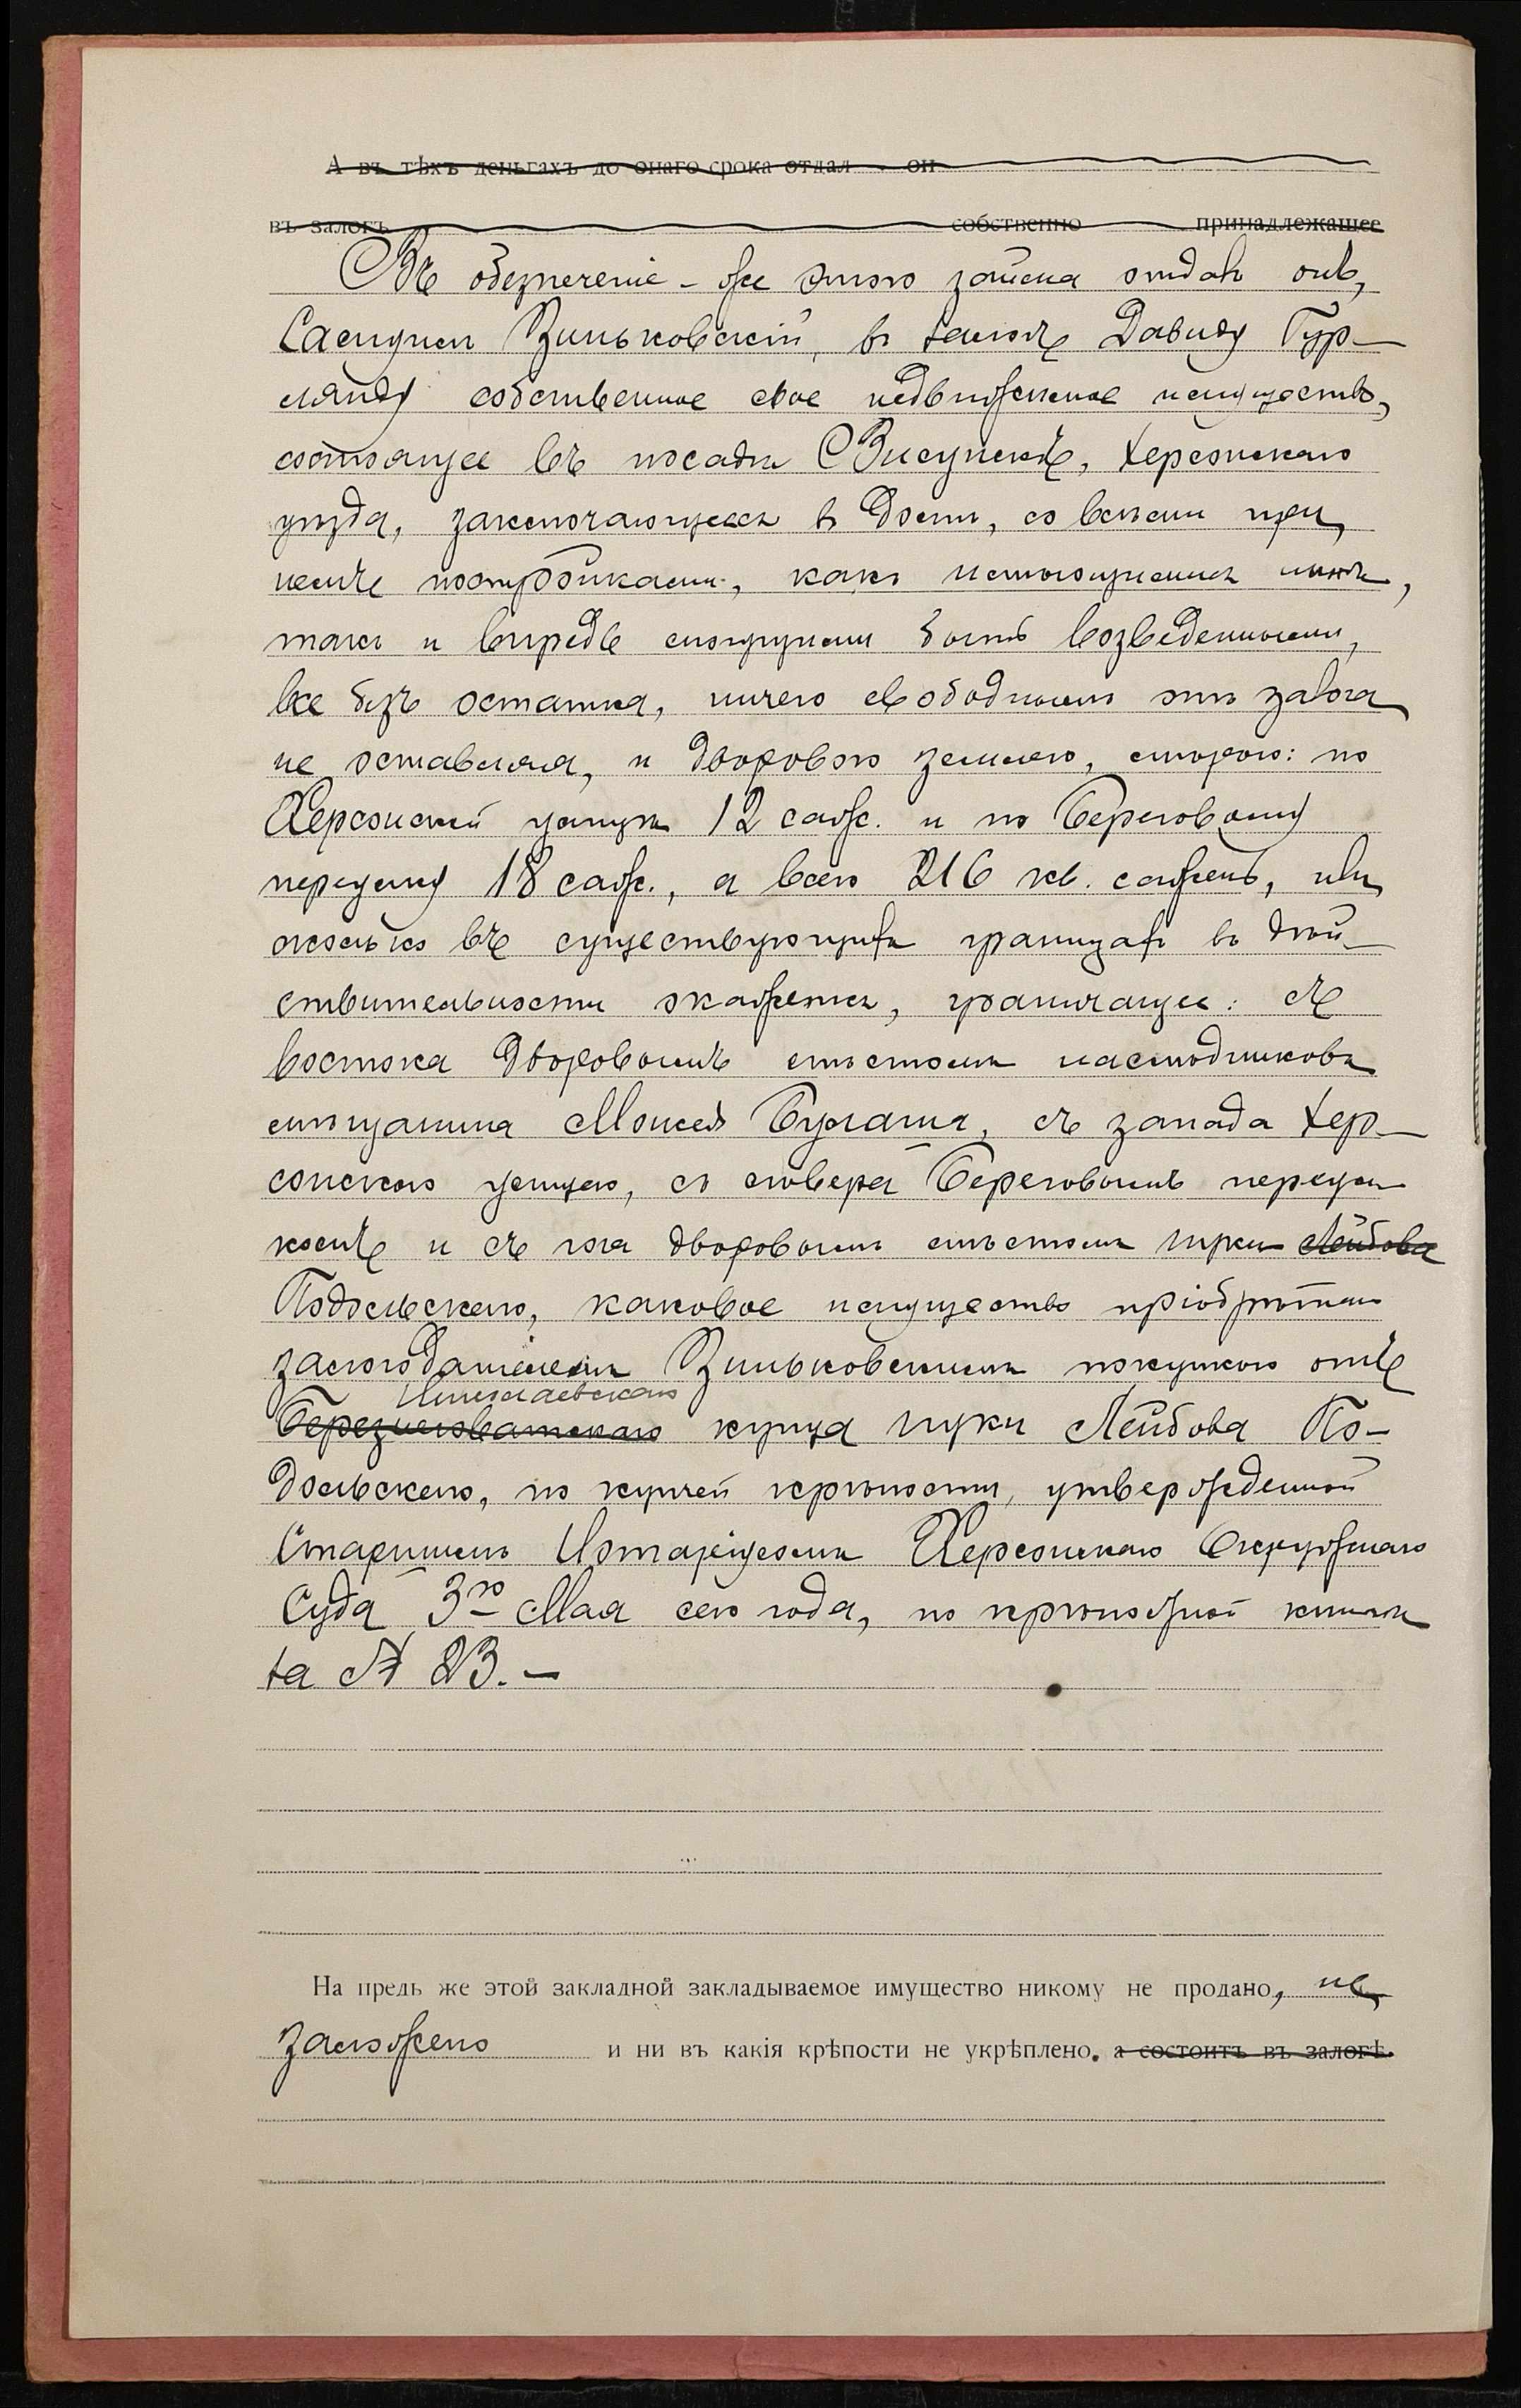 А въ тѣхъ деньгахъ до онаго срока отдал он
въ залогъ собственно принадлежащее
Въ обезпеченіе-же этого займа отдалъ онъ,
Самуилъ Зиньковскій, въ залогъ Давиду Гур-
лянду собственное свое недвижимое имущество,
состоящее въ посадѣ Висунскѣ, Херсонскаго
уѣзда, заключающееся въ домѣ, со всѣми при
немъ постройками, какъ имѣющимися нынѣ,
такъ и впредь могущими быть возведенными,
все безъ остатка, ничего свободнымъ отъ залога
не оставляя, и дворовою землею, мѣрою: по
Херсонской улицѣ 12 саж. и по Береговому
переулку 18 саж., а всего 216 кв. сажень, или
сколько въ существующихъ границахъ въ дѣй-
ствительности окажется, граничащее: съ
востока дворовымъ мѣстомъ наслѣдниковъ
мѣщанина Моисея Бугаля, съ запада Хер-
сонскою улицею, съ сѣвера Береговымъ переул
комъ и съ юга дворовымъ мѣстомъ Цуки Лейбова
Подольскаго, каковое имущество пріобрѣтено
залогодателемъ Зиньковскимъ покупкою отъ
Николаевскаго
Березнеговатскаго купца Цуки Лейбова По-
дольскаго, по купчей крѣпости, утвержденной
Старшимъ Нотаріусомъ Херсонскаго Окружнаго
Суда 3го Мая сего года, по крѣпостной книгѣ
за № 23.—
На предь же этой закладной закладываемое имущество никому не продано, не
заложено и ни въ какія крѣпости не укрѣплено. а состоитъ въ залогѣ.